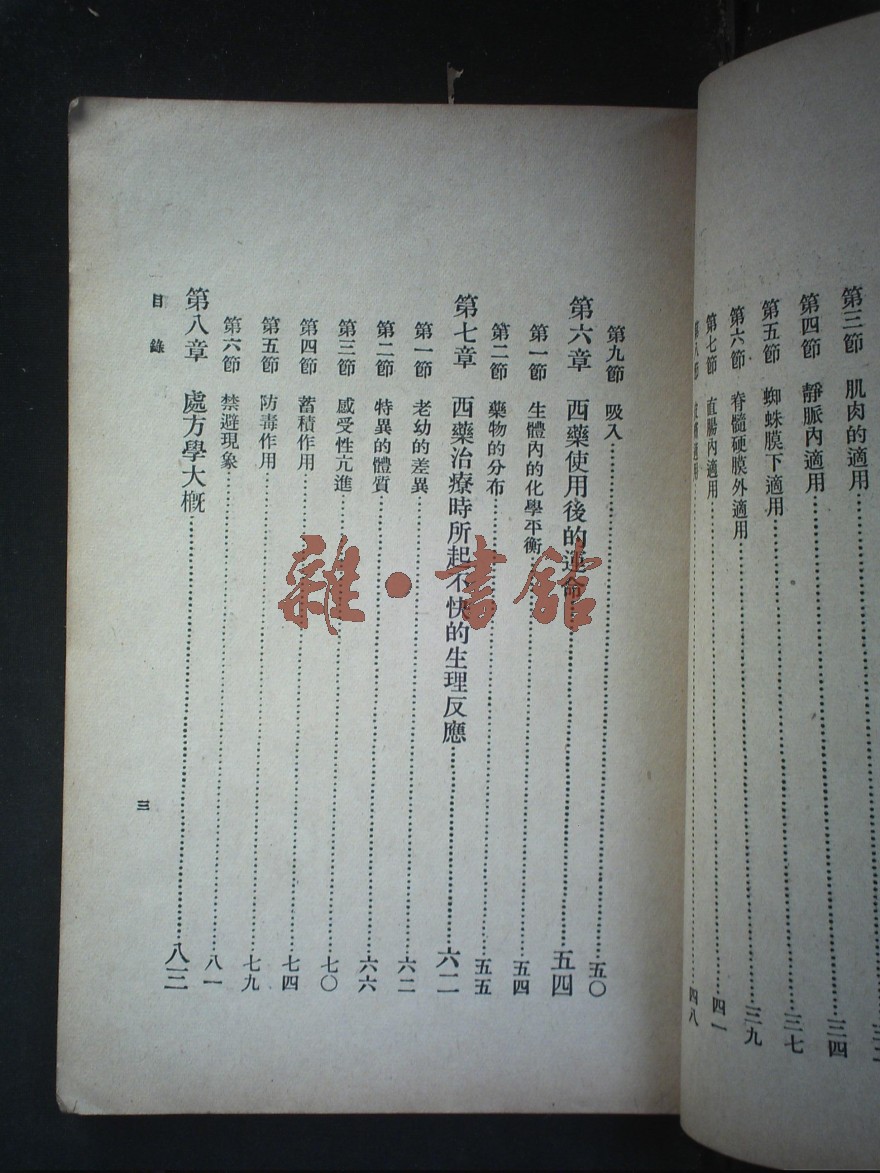 第三節 肌肉的適用
第四節 靜脈內適用……三四
第五節 蜘蛛膜下適用……三七
第六節 脊髓硬膜外適用……三九
第七節 直腸內適用……四一
第八節 適用……四八
第九節 吸入……五〇
第六章 西藥使用後的運命……五四
第一節 生體內的化學平衡……五四
第二節 藥物的分布……五五
第七章 西藥治療時所起不快的生理反應……六二
第一節 老幼的差異……六二
第二節 特異的體質……六六
第三節 感受性亢進……七〇
第四節 蓄積作用……七四
第五節 防毒作用……七九
第六節 禁避現象……八一
第八章 處方學大概……八三
目錄
三
雜·書館